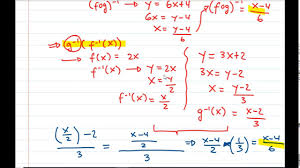 (fog)⁻¹ → y = 6x+4
6x = y-4
x = y-4/6
(fog)⁻¹ = x-4/6
⇒ g⁻¹(f⁻¹(x))
→ f(x) = 2x
f⁻¹(x) → y = 2x
x = y/2
f⁻¹(x) = x/2
y = 3x+2
3x = y-2
x = y-2/3
g⁻¹(x) = x-2/3
(x/2) - 2 / 3 = x-4/2 / 3 ⇒ x-4/2 (1/3) = x-4/6